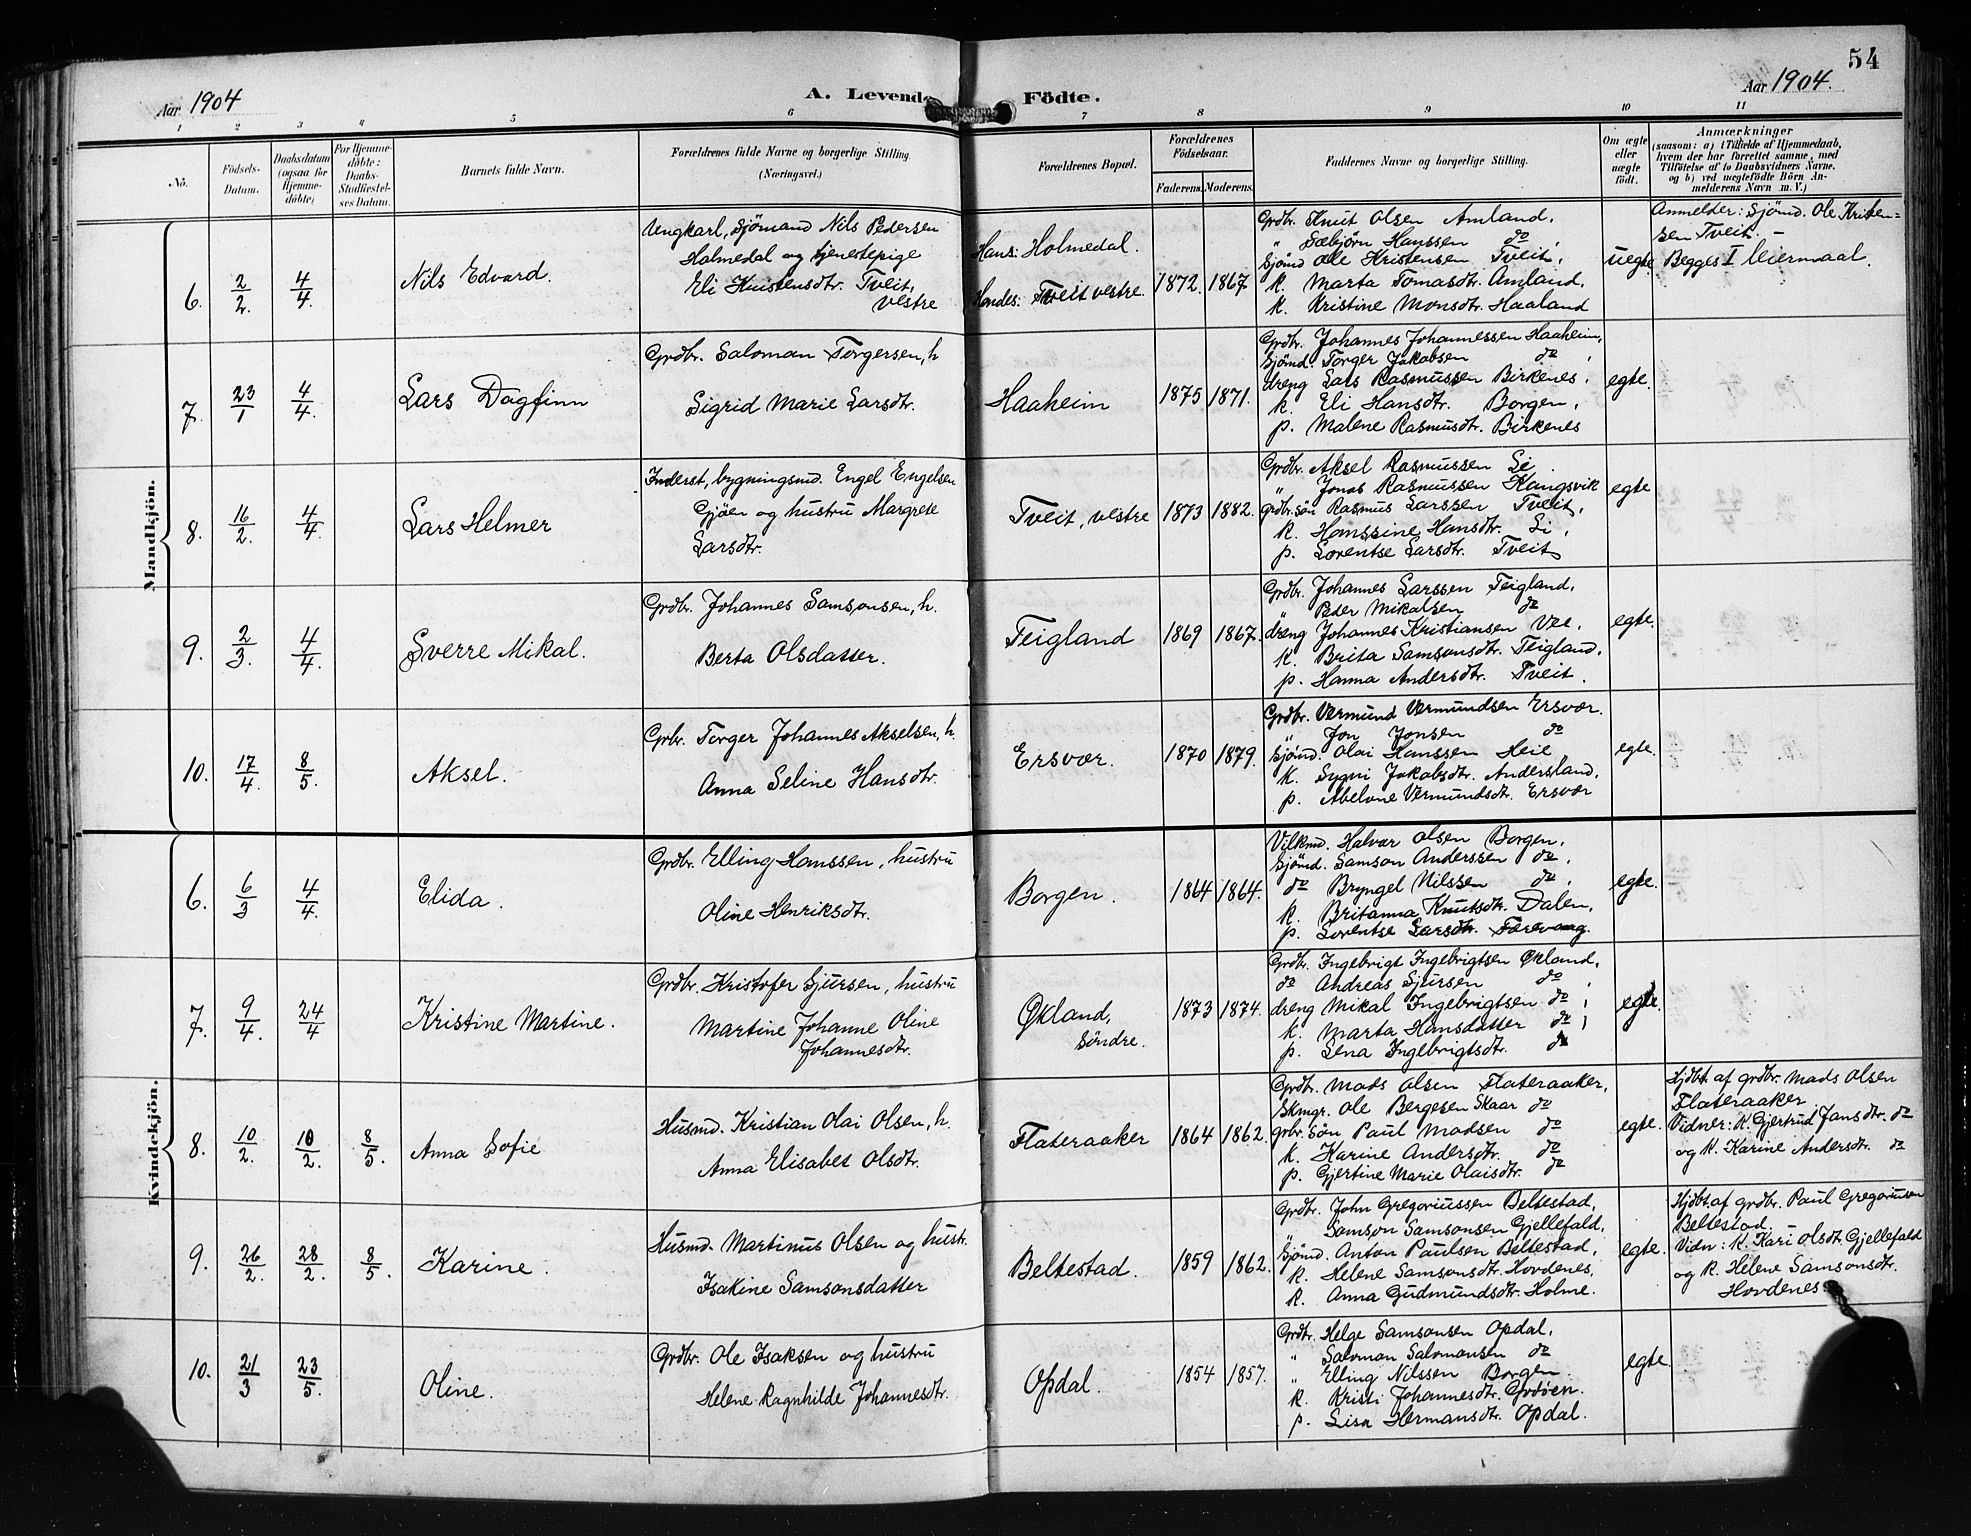 54
Aar 1904
A. Levende Födte.
Aar 1904.
1 2 3 4 5 6 7 8 9 10 11
No.
Födsels-Datum.
Daabsdatum (ogsaa for Hjemme-döbte)
For Hjemme-döbte: Daabs-Stadfæstel-ses Datum.
Barnets fulde Navn.
Forældrenes fulde Navne og borgerlige Stilling. (Næringsvei.)
Forældrenes Bopæl.
Forældrenes Födselsaar.
Faderens. Moderens.
Faddernes Navne og borgerlige Stilling.
Om ægte eller uægte födt.
Anmærkninger
(saasom: a) i Tilfælde af Hjemmedaab,
hvem der har forrettet samme, med
Tilföielse af to Daabsvidners Navne.
og b) ved uægtefödte Börn An-
melderens Navn m. V.)
Mandkjön.
6. 2/2. 4/4. Nils Edvard.
Ungkarl, Sjömand Nils Pedersen
Holmedal og tjenestepige
Eli Kristensdtr. Tveit,
vestre
Hans: Holmedal.
Hendes: Tveit vestre.
1872. 1867
Grdbr. Knut Olsen Amland.
" Sæbjörn Hanssen do.
Sjömd Ole Kristensen Tveit,
k. Marta Tomasdtr. Amland.
k. Kristine Monsdtr. Haaland
uegte
Anmelder: Sjömd. Ole Kristen=
sen Tveit. -
Begges I leiermaal.
7. 23/1 4/4. Lars Dagfinn
Grdbr. Saloman Torgersen, h
Sigrid Marie Larsdtr.
Haaheim
1875 1871.
Grdbr. Johannes Johannessen Haaheim,
Sjömd. Torger Jakobsen do,
dreng Lars Rasmussen Birkenes,
k. Eli Hansdtr. Borgen,
p. Malene Rasmusdtr. Birkenes
egte.
8. 16/2. 4/4. Lars Helmer
Inderst, bygningsmd. Engel Engelsen
Gjöen og hustru Margrete
Larsdtr.
Tveit, vestre
1873 1882.
Grdbr. Aksel Rasmussen Li
" Jonas Rasmussen Kongsvik
grdbr. sön Rasmus Larssen Tveit,
k. Hanssine Hansdtr. Li,
p. Lorentse Larsdtr. Tveit
egte
9. 2/3. 4/4. Sverre Mikal.
Grdbr. Johannes Samsonsen, h.
Berta Olsdatter.
Teigland
1869 1867.
Grdbr. Johannes Larssen Teigland,
" Peder Mikalsen do
dreng Johannes Kristiansen Vee,
k. Brita Samsonsdtr. Teigland,
p. Hanna Andersdtr. Tveit.
egte.
10. 17/4. 8/5. Aksel.
Grbr. Torger Johannes Akselsen, h.
Anna Seline Hansdtr.
Ersvær.
1870 1879.
Grdbr. Vermund Vermundsen Ersvær.
" Jon Jonsen do
Sjömd. Olai Hanssen Heie
k. Sygni Jakobsdtr. Andersland,
p. Abelone Vermundsdtr. Ersvær
egte.
Kvindekjön.
6. 6/3 4/4. Elida.
Grdbr. Elling Hanssen, hustru
Oline Henriksdtr.
Borgen.
1864 1864.
Vilkmd. Halvar Olsen Borgen,
Sjömd. Samson Anderssen do,
do Bryngel Nilssen do,
k. Britanna Knutsdtr. Dalen,
p. Lorentse Larsdtr. Færevaag.
egte.
7. 9/4. 24/4 Kristine Martine.
Grdbr. Kristofer Sjursen, hustru
Martine Johanne Oline
Johannesdtr.
Økland,
Söndre.
1873 1874.
Grdbr. Ingebrigt Ingebrigtsen Økland,
do Andreas Sjursen do,
dreng Mikal Ingebrigtsen do,
k. Marta Hansdatter do,
p. Lena Ingebrigtsdtr. do
egte.
8. 10/2. 10/2. 8/5. Anna Sofie
Husmd. Kristian Olai Olsen, h.
Anna Elisabet Olsdtr.
Flateraaker
1864 1862.
Grdbr. Mads Olsen Flateraaker,
Skmgr. Ole Bergesen Skaar do
grbr. sön Paul Madsen do
k. Karine Andersdtr. do
p. Gjertine Marie Olaisdtr. do
egte.
Hjdbt. af grdbr. Mads Olsen
Flateraaker.
Vidner: K. Gjertrud Jansdtr. do
og K. Karine Andersdtr. do
9. 26/2. 28/2. 8/5. Karine.
Husmd. Martinus Olsen og hustr.
Isakine Samsonsdatter
Beltestad.
1859 1862.
Grdbr. John Gregoriussen Beltestad,
" Samson Samsonsen Gjellefald,
Sjömd. Anton Paulsen Beltestad,
k. Helene Samsonsdtr. Hovdenes,
k. Anna Gudmundsdtr. Holme.
egte.
Hjdbt. af grdbr. Paul Gregoriussen
Beltestad.
Vidn: K. Kari Olsdt. Gjellefald
og K. Helene Samsonsdtr.
Hovdenes
10. 21/3 23/5. Oline.
Grdbr. Ole Isaksen og hustru
Helene Ragnhilde Johannesdtr.
Opdal.
1854 1857.
Grdbr. Helge Samsonsen Opdal,
" Saloman Salomonsen do
" Elling Nilssen Borgen
k. Kristi Johannesdtr. Grdöen.
p. Lisa Hermansdtr. Opdal.
egte.